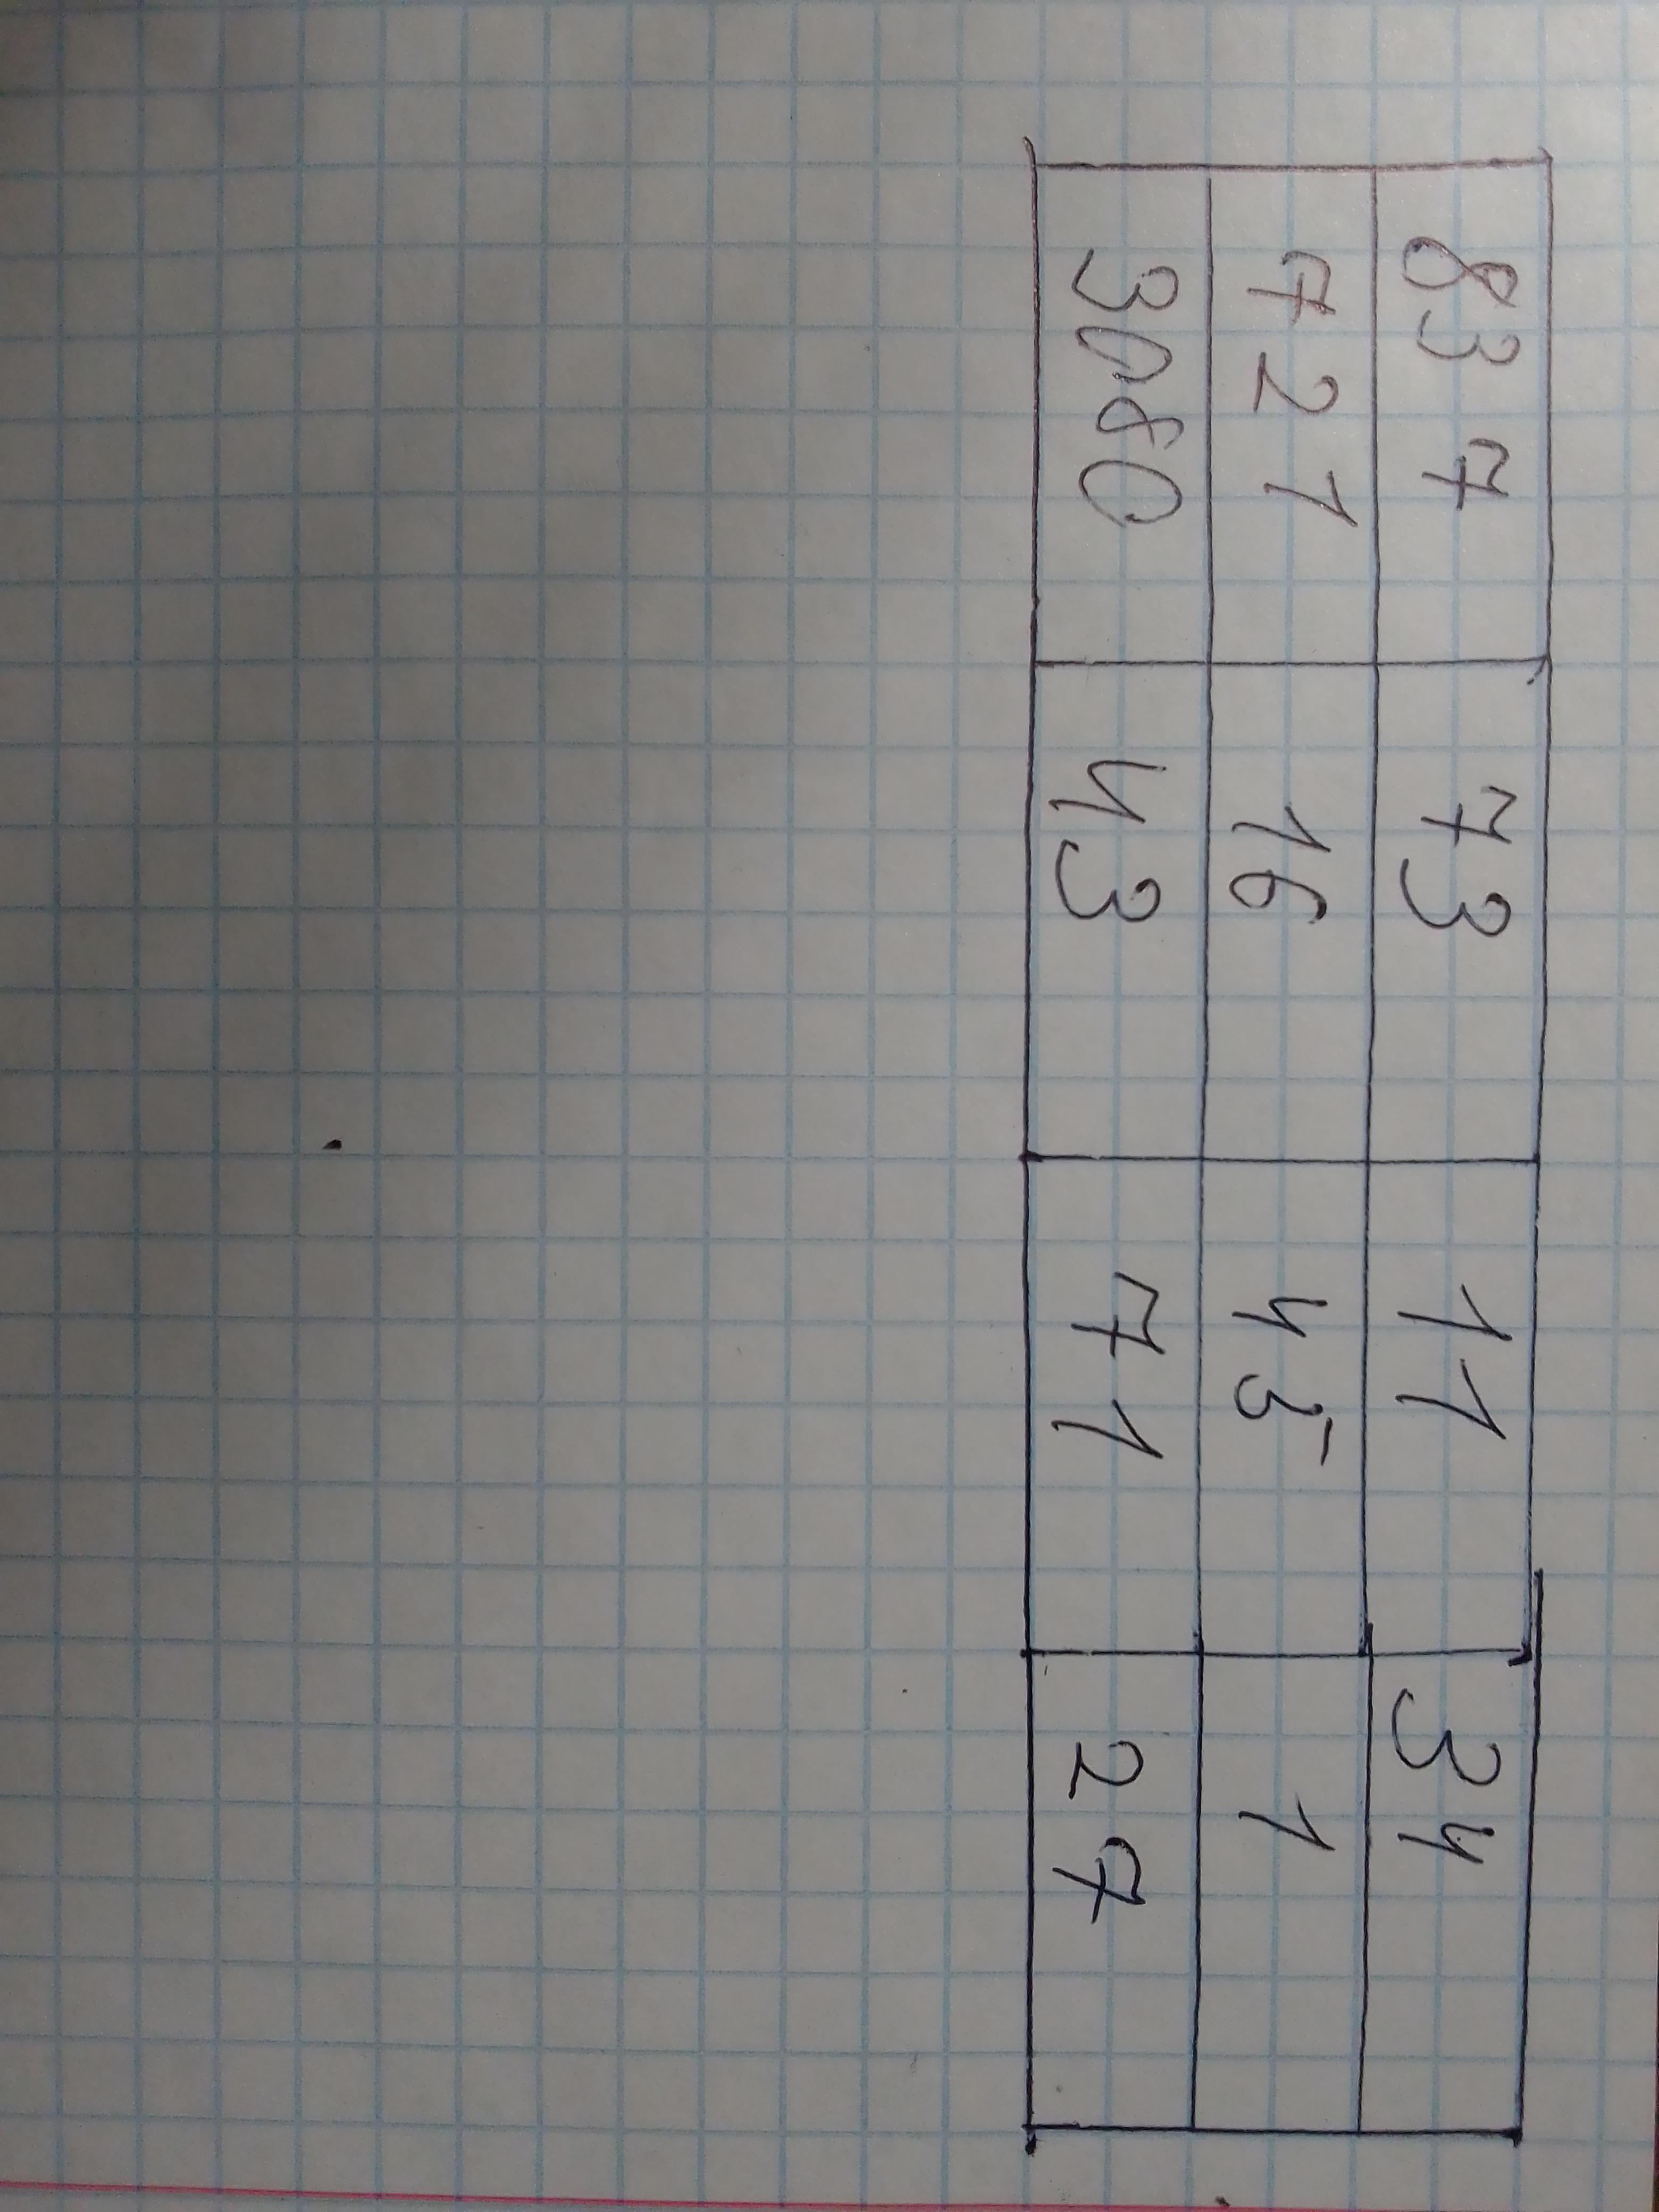 837 73 11 34
721 16 45 1
3080 43 71 27